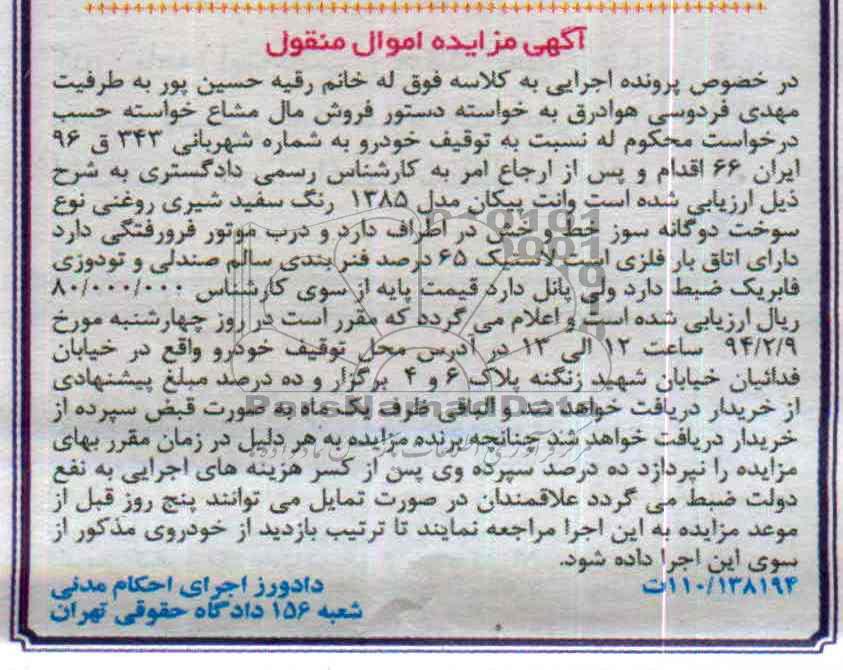 آگهی مزایده اموال منقول
در خصوص پرونده اجرایی به کلاسه فوق له خانم رقیه حسین پور به طرفیت
مهدی فردوسی هوادرق به خواسته دستور فروش مال مشاع خواسته حسب
درخواست محکوم له نسبت به توقیف خودرو به شماره شهربانی ۳۴۳ ق ۹۶
ایران ۶۶ اقدام و پس از ارجاع امر به کارشناس رسمی دادگستری به شرح
ذیل ارزیابی شده است وانت پیکان مدل ۱۳۸۵ رنگ سفید شیری روغنی نوع
سوخت دوگانه سوز خط و خش در اطراف دارد و درب موتور فرورفتگی دارد
دارای اتاق بار فلزی است لاستیک ۶۵ درصد فنر بندی سالم صندلی و تودوزی
فابریک ضبط دارد ولی پانل دارد قیمت پایه از سوی کارشناس ۸۰/۰۰۰/۰۰۰
ریال ارزیابی شده است و اعلام می گردد که مقرر است در روز چهارشنبه مورخ
۹۴/۲/۹ ساعت ۱۲ الی ۱۳ در آدرس محل توقیف خودرو واقع در خیابان
فدائیان خیابان شهید زنگنه پلاک ۶ و ۴ برگزار و ده درصد مبلغ پیشنهادی
از خریدار دریافت خواهد شد و الباقی ظرف یک ماه به صورت قبض سپرده از
خریدار دریافت خواهد شد چنانچه برنده مزایده به هر دلیل در زمان مقرر بهای
مزایده را نپردازد ده درصد سپرده وی پس از کسر هزینه های اجرایی به نفع
دولت ضبط می گردد علاقمندان در صورت تمایل می توانند پنج روز قبل از
موعد مزایده به این اجرا مراجعه نمایند تا ترتیب بازدید از خودروی مذکور از
سوی این اجرا داده شود.
۱۱۰/۱۳۸۱۹۴ت
دادورز اجرای احکام مدنی
شعبه ۱۵۶ دادگاه حقوقی تهران
ParsNamadData